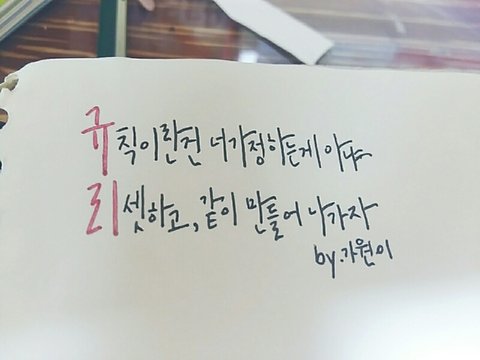 규칙이란건 너가정하는게 아냐
리셋하고, 같이 만들어 나가자
by.가원이